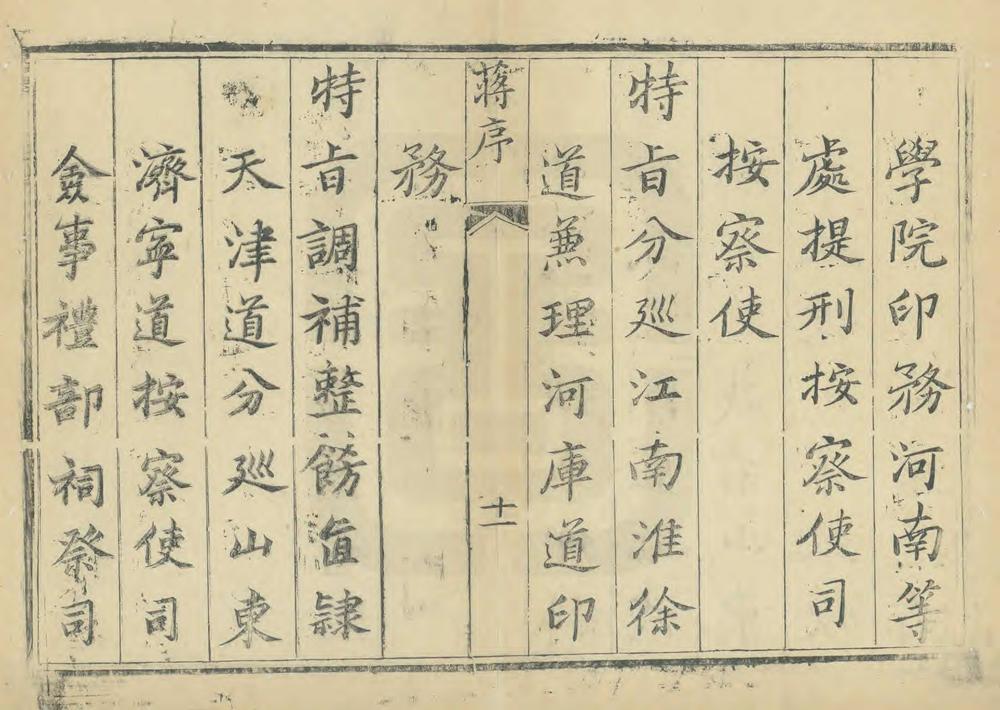 學院印務河南等
處提刑按察使司
按察使
特旨分廵江南淮徐
道兼理河庫道印
務
蔣序
十一
特旨調補整飭直隷
天津道分廵山東
濟寧道按察使司
僉事禮部祠祭司